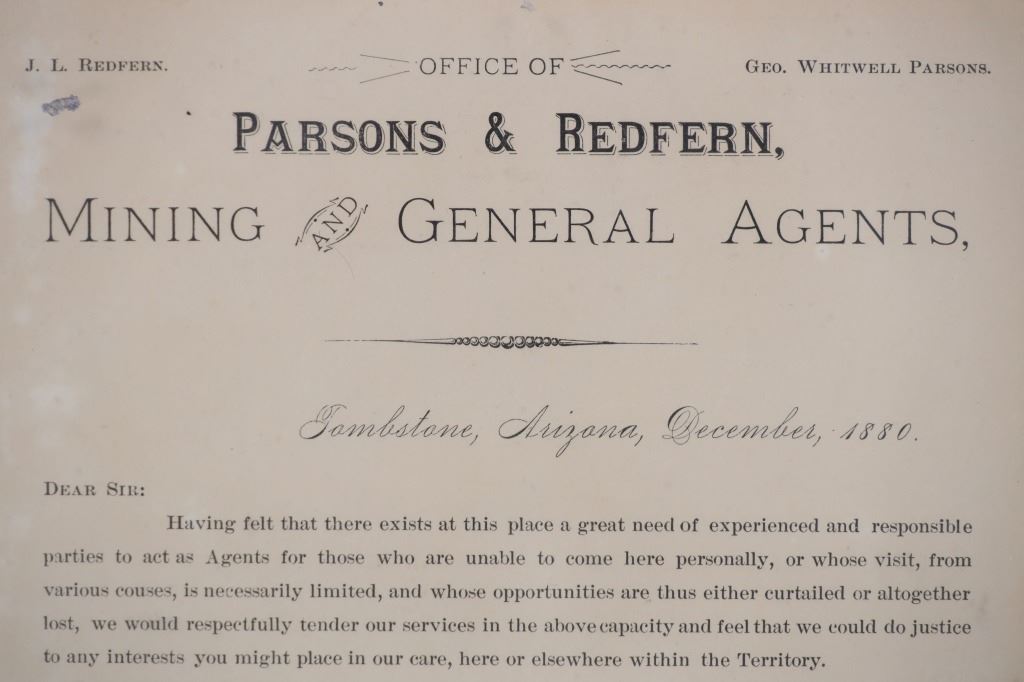 J. L. REDFERN.
OFFICE OF
GEO. WHITWELL PARSONS.
PARSONS & REDFERN,
MINING AND GENERAL AGENTS,
Tombstone, Arizona, December, 1880.
DEAR SIR:
Having felt that there exists at this place a great need of experienced and responsible
parties to act as Agents for those who are unable to come here personally, or whose visit, from
various couses, is necessarily limited, and whose opportunities are thus either curtailed or altogether
lost, we would respectfully tender our services in the above capacity and feel that we could do justice
to any interests you might place in our care, here or elsewhere within the Territory.